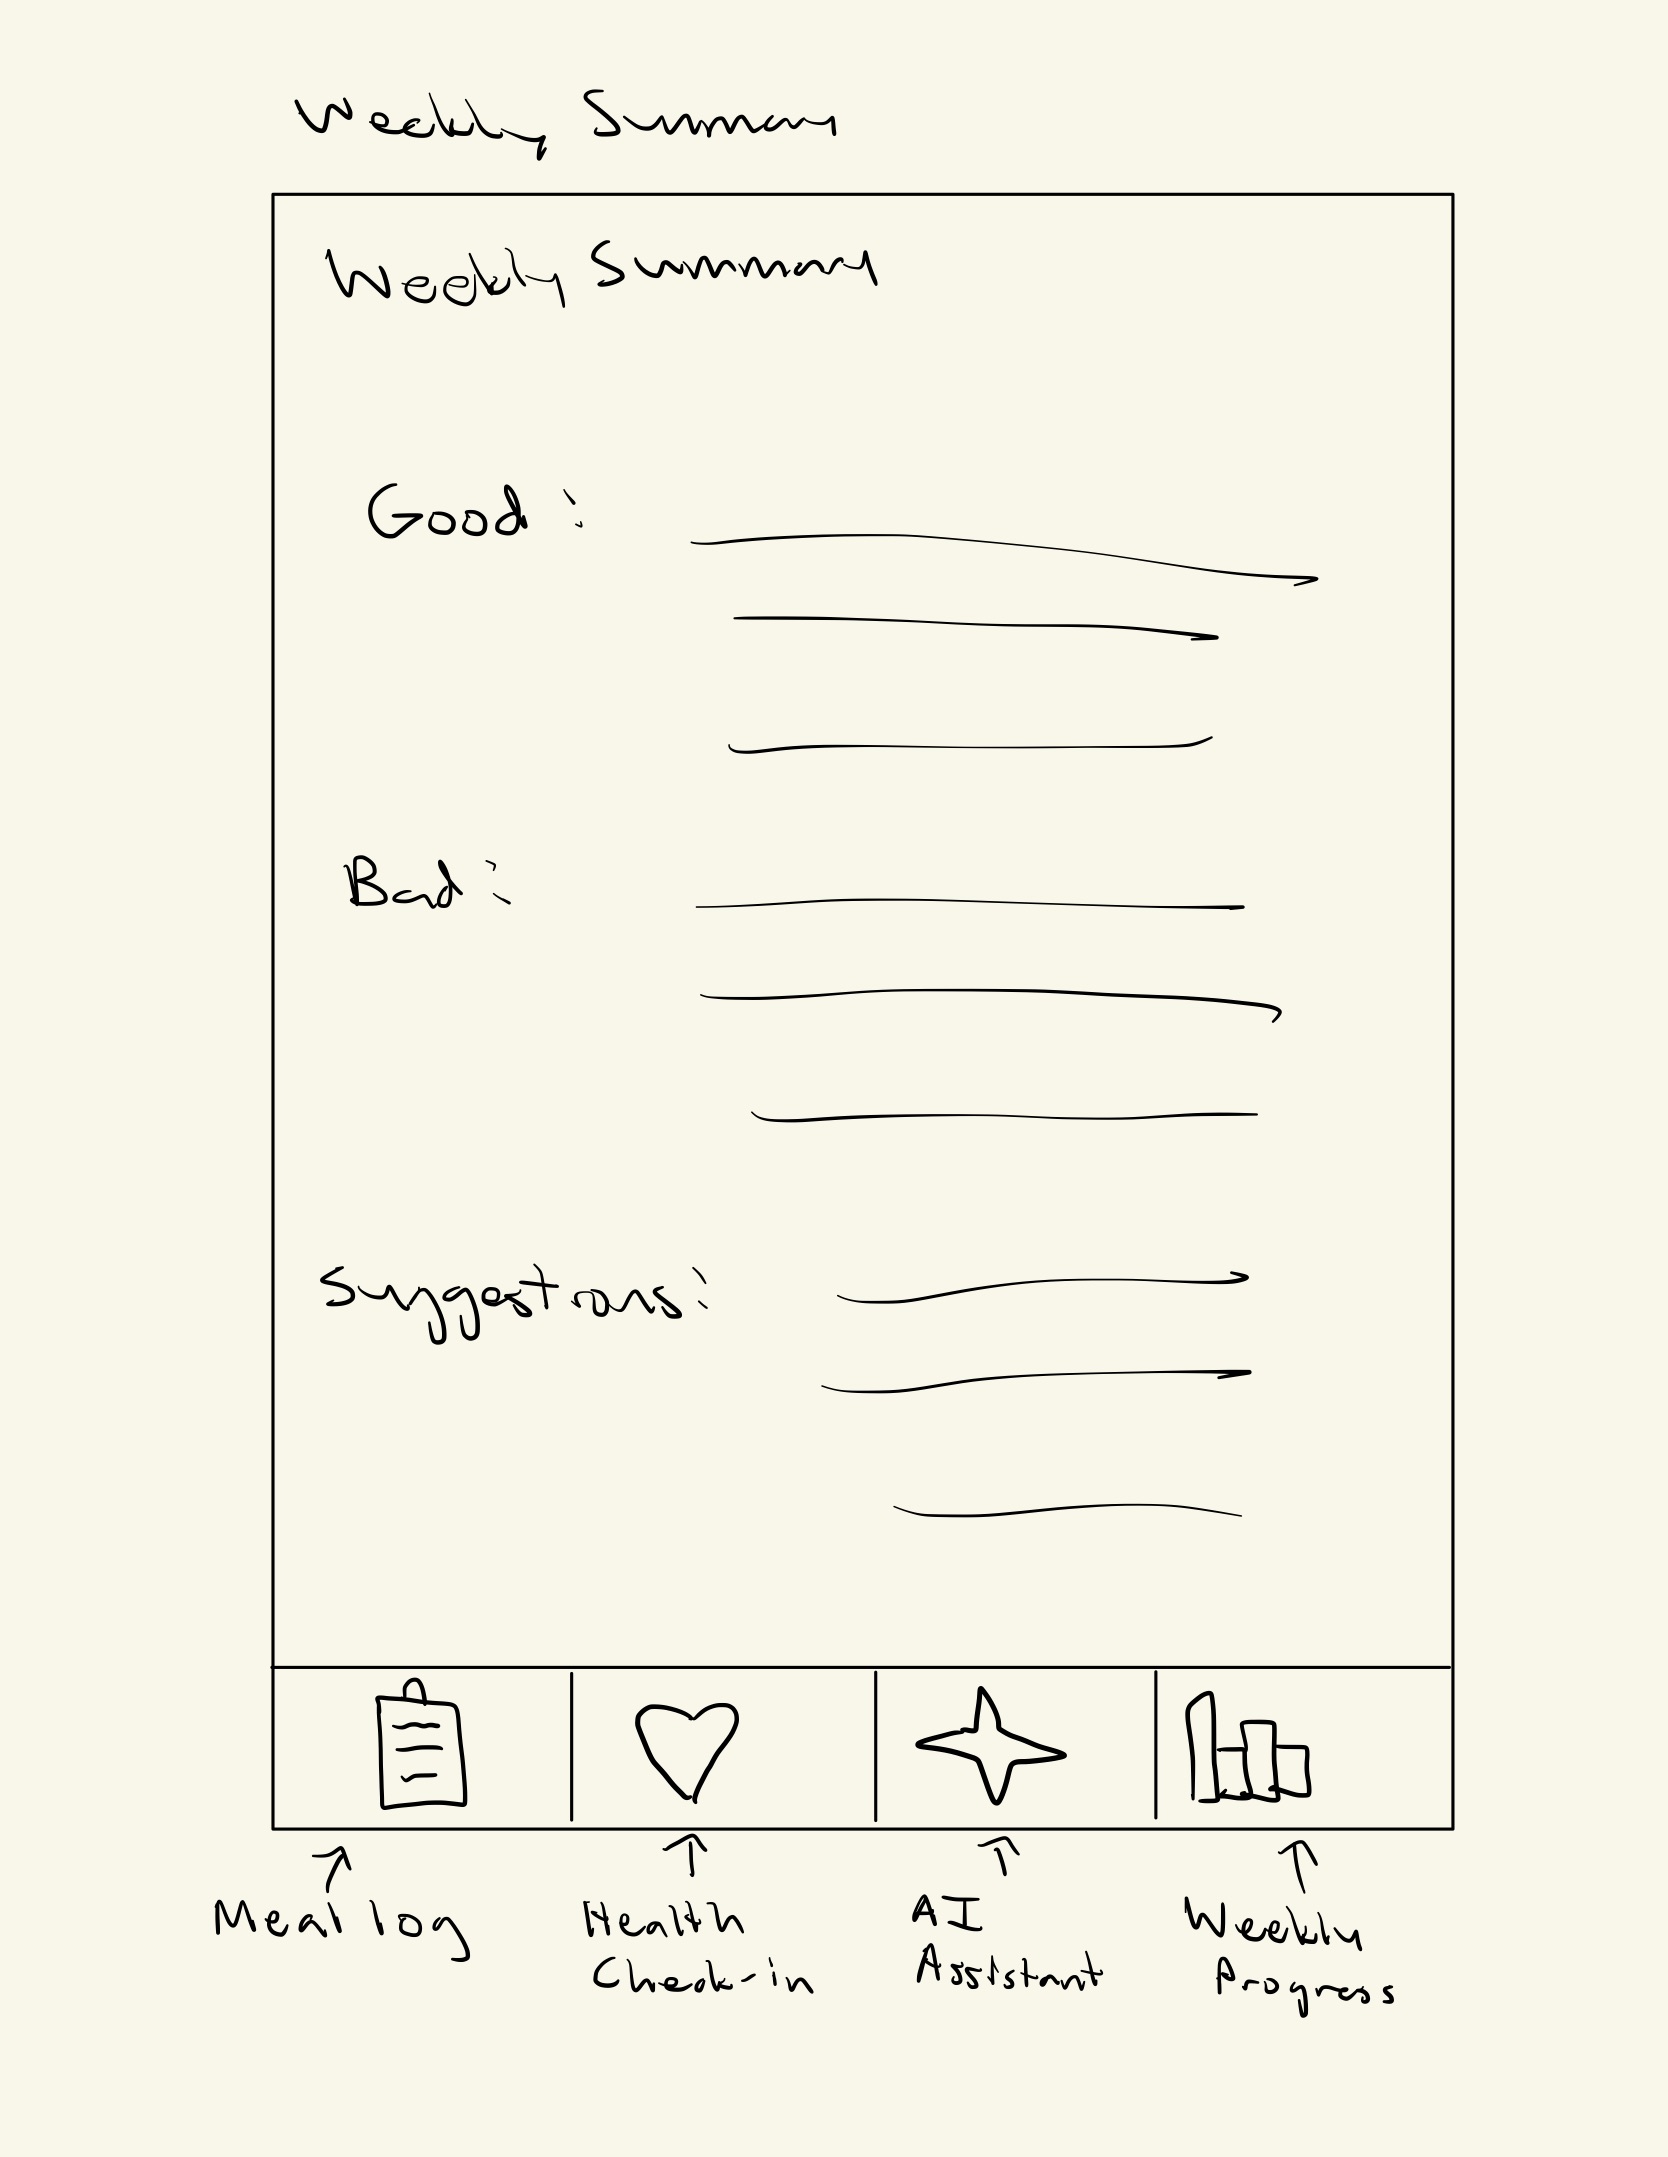 Weekly Summary
Weekly Summary
Good :
Bad :
Suggestions:
Meal log
Health
Check-in
AI
Assistant
Weekly
Progress